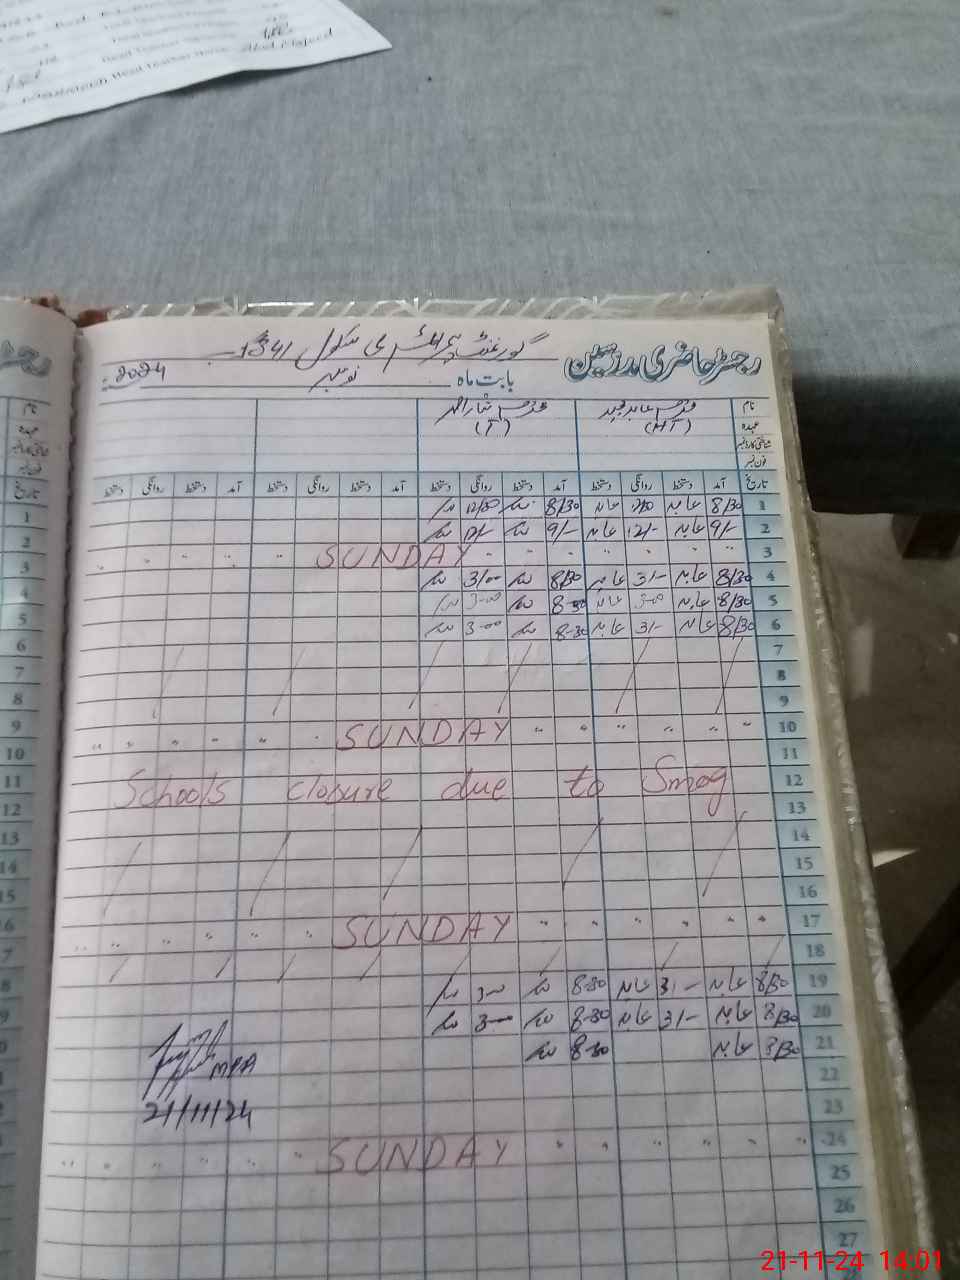 Head Teacher Name
Abid Majeed
رجسٹر حاضری مدرسین
گورنمنٹ پرائمری سکول 134/
بابت ماہ نومبر 2024
نام
عہدہ (HT) (T)
شناختی کارڈ نمبر
فون نمبر
تاریخ آمد دستخط روانگی دستخط آمد دستخط روانگی دستخط آمد دستخط روانگی دستخط آمد دستخط روانگی دستخط
1 8/30 عابد عابد 8/30 12/30
2 9/- عابد 12/- عابد 9/- 12/-
3 " " " " " " SUNDAY " " " "
4 8/30 عابد 3/- عابد 8/30 3/00
5 8/30 عابد 3-00 عابد 8-30 3-00
6 8/30 عابد 3/- عابد 8-30 3-00
7
8
9
10 " " " " " " SUNDAY " " " " "
11
12 Schools closure due to Smog
13
14
15
16
17 " " " " " " SUNDAY " " " " "
18
19 8/30 عابد 3/- عابد 8-30 3-00
20 8/30 عابد 3/- عابد 8-30 3-00
21 8/30 عابد 8-30
MEA
22
23
21/11/24
24 " " " " " " SUNDAY " " " " "
25
26
27
21-11-24 14:01